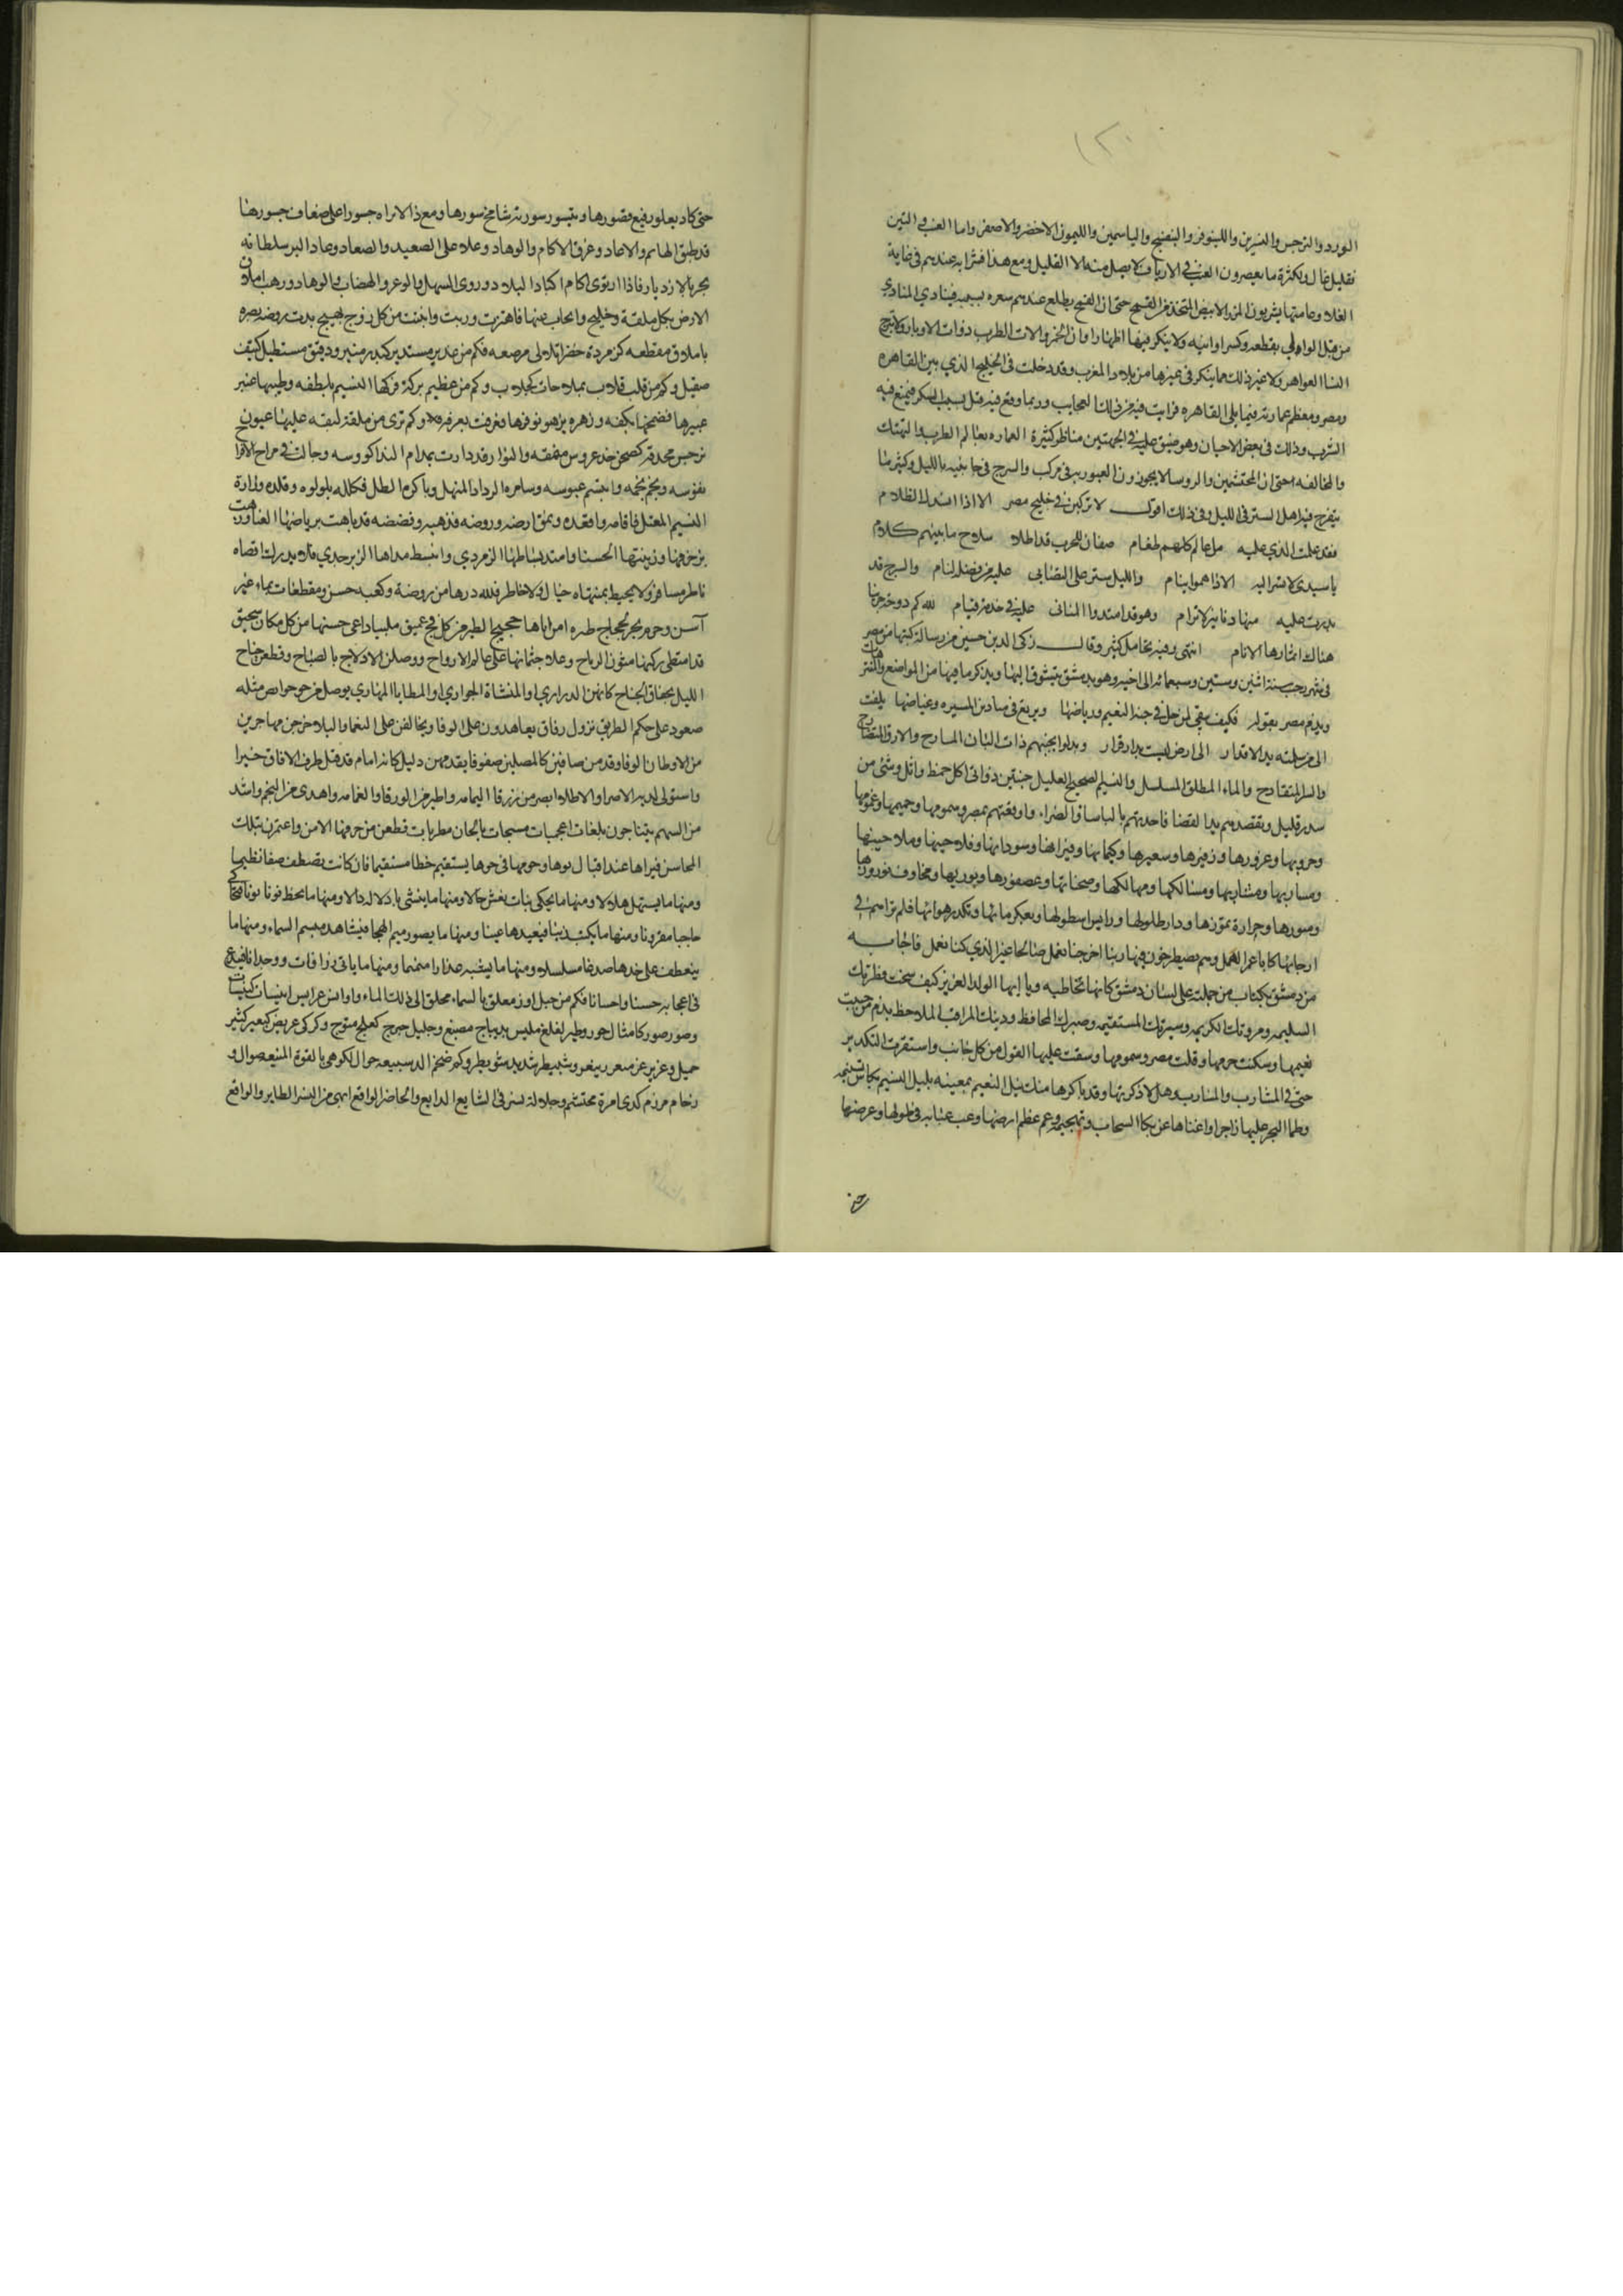 ١٢٠
الورد والنرجس والنسرين واللينوفر والبنفسج والياسمين والليمون الاخضر والاصفر واما العنب والتين
فقليل غال ولكثرة ما يعصرون العنب في الارياف لا يصل منه الا القليل ومع هذا فشرابه عندهم في غاية
الغلا وعامتها يشربون المزر الابيض المتخذ من القمح حتى ان القمح يطلع عندهم سعره بسببه فينادي المنادي
من قبل الوالي بقطعه وكسر اوانيه ولا ينكر فيها اظهار اواني الخمر والات الطرب ذوات الاوتار ولا تبرج
النسا العواهر ولا غير ذلك مما ينكر في غيرها من بلاد المغرب وقد دخلت في الخليج الذي بين القاهره
ومصر ومعظم عمارته فيما يلي القاهره فرايت فيه من ذلك العجايب وربما وقع فيه قتل بسبب السكر فيمنع فيه
الشرب وذلك في بعض الاحيان وهو ضيق عليه في الجهتين مناظر كثيرة العماره بعالم الطرب والتهتك
والمخالفه حتى ان المحتشمين والروسا لا يجيزون العبور به في مركب والسرج في جانبيه بالليل وكثيرا ما
يتفرج فيه اهل الستر في الليل وفي ذلك اقول لا تركبن في خليج مصر الا اذا اسدل الظلام
فقد علمت الذي عليه من عالم كلهم طغام صفان للحرب قد اطلا سلاح ما بينهم كلام
يا سيدي لا تسر اليه الا اذا هوم النيام والليل ستر على التصابي عليه من فضله لثام والسرج قد
بددت عليه منها دنانير لا ترام وهو قد امتد والمباني عليه في خدمة قيام لله كم دوحة جنينا
هناك اثمارها الاثام انتهى وفيه تحامل كثير وقال زكي الدين حسين من رسالة كتبها من مصر
في شهر رجب سنة اثنين وستين وسبعمائه الى اخيه وهو بدمشق يتشوق اليها ويذكر ما فيها من المواضع والمنتزهات
ويذم مصر بقوله فكيف يبقى لمن حل في جنة النعيم ورياضها ويرتع في ميادين المسيره وغياضها يلفت
الى من سلمته يد الاقدار الى ارض ليست بدار قرار وبدلوا بجنتيهم ذات البان المسارح والارق المتفاوح
والسر المتقادح والماء المطلق المسلسل والنسيم الصحيح العليل جنتين ذواتى اكل خمط واثل وشئ من
سدر قليل ويقصدهم يد القضا فاحدتهم بالباساء والضراء واوقعتهم بمصر وسمومها وحميمها وغمومها
وحرورها وغرورها وزفيرها وسعيرها وكيمانها وفيرانها وسودانها وفلاحينها وملاحينها
ومساربها ومشاربها ومسالكها ومهالكها وصحناتها وعصفورها وبوريها ومخاوف نوروزها
وصورها وحرارة تموزها ودار طلولها ورايس اسطولها وبعكر مائها وتكدر هوائها فلم تراهم في
ارجائها كاباعر الهمل وهم يصطرخون فيها ربنا اخرجنا نعمل صالحا غير الذي كنا نعمل فاجابه
من دمشق بكتاب من جملته على لسان دمشق كانها تخاطبه ويا ايها الولد العزيز كيف سخت فطرتك
السليمه ومروتك الكريمه وسيرتك المستقيمه وصبرك المحافظ ودينك المراقب الملاحظ بذم من جنيت
نعيمها وسكنت حرمها وقلت مصر وسمومها وسقت عليها القول من كل جانب واستقريت التكدير
حتى في المشارب والمسارب وهل لا ذكرتها وقد باكرها منك نيل النعيم بمعينه بليل النسيم بكاس تسنيمه
وطما البحر عليها زاجرا واغناها عن بكا السحاب وتهجيمه وعم عظم ارضها وعب عبابه في طولها وعرضها
حتى
حتى كاد يعلو رفيع قصورها ويتسور سورته شامخ سورها ومع ذا لا تراه جسورا على ضعاف جسورها
قد طبق التهايم والانجاد وغرق الاكام والوهاد وعلا على الصعيد والصعاد وعاد البر سلطانه
بحر بالازدياد فاذا ارتوى اكام اكباد البلاد وروى السهل والوعر والهضاب والوهاد
الارض بكل ملقة وخليج وانجاب عنها فاهتزت وربت وانبتت من كل زوج بهيج بدت روضه
باملاق مقطعه كزمردة خضرا بلالي مرصعه فكم من غدير مستدير كبدر منير ودقيق مستطيل كسيف
صقيل وكم من قلب قلاب بملاحات كجلاب وكم من عظيم بركة فركها النسيم بلطفه وطيبها عنبر
عبيرها فضمخها بكفه وزهره يزهو نوفرها فعرفت بعرفه وكم ترى من ملقة لبقه عليها عيون
نرجس محدقه كصحن خد عروس منمقه والنوار قد دارت بمدام الندا كووسه وجالت في مراح الافراح
نفوسه ونجم نجمه وابتسم عبوسه وسامره الرداد المنهل وباكره الطل فكلله بلولوه وقلده وزاره
النسيم المعتل فاقامه واقعده ونمق ارضه وروضه فذهبه وفضضه قد باهت برياضها الغنا وزهت
بزخرفها وزينتها الحسنا وامتد بساطها الزمردي وانبسط مداها الزبرجدي فلا يدرك اقصاه
ناظر مسافر ولا يحيط بمنتهاه خيال ولا خاطر فلله درها من روضة وكعبه حسن ومقطعات بماء غير
آسن وحرم بحر لحجاج طيره امن اتاها حجيج الطير من كل فج عميق ملبيا داعي حسنها من كل مكان سحيق
قد امتطى ركبها متون الرياح وعلا جثمانها على عالم الارواح ووصلن الادلاج بالصباح وقطعن جناح
الليل بخفاق الجناح كانهن الدراري او المنشاة الجواري او المطايا المهاري
صعود على حكم الطريق نزول رفاق تعاهدون على الوفا وتحالفن على النعما والبلا خرجن مهاجرين
من الاوطان الوفا وقدمن صافين كالمصلين صفوفا يقدمهن دليل كانه امام قد قبل طرف الافاق خبيرا
واستولى لديه الامر والاطلاع ابصر من زرقا اليمامه واطير من الورقا والغمامه واهدى من النجم واشد
من السهم يتناجون بلغات اعجميات مسبحات بالحان مطربات قطعن من حرمها الامن واعتمرن بتلك
المحاسن فيراها عند اقبال نوها وحومها في جوها يستقيم خطا مستقيما فان كانت تصطف صفا نظيما
ومنها ما يستهل هلالا ومنها ما يحكي بنات نعش حالا ومنها ما ينشئ بادلاله دالا ومنها ما يخط فونا نونا فتحاكي
حاجبا مقرونا ومنها ما يكتب عينا فيعيدها عينا ومنها ما يصور ميم الهجا فيشاهد مبسم السماء ومنها ما
ينعطف على خدها صدغا مسلسلا ومنها ما يشبه عذارا منمنما ومنها ما ياتي زرافات ووحدانا فيبدع
في اعجابه حسنا واحسانا فكم من حبل اوز معلق بالسماء محلق الى ذلك الماء واوانس عرايس انيسات كيسات
وصور صور كامثال حور وطير لغلغ ملبس بديباج مصبغ وجليل حبرج كعلج متوج وكركي عريض كبعير كثير
جميل وعزيز غر منعر بيغر وشبيطر شديد مشويطر وكم ضخم الدسيعه جوال لكوهي بالقوة المنيعه صوال و
رخام مرزم كدى امرة محتشم وجلالة نسر في الشايع الدايع والحاضر الواقع انهى من النسر الطاير والواقع